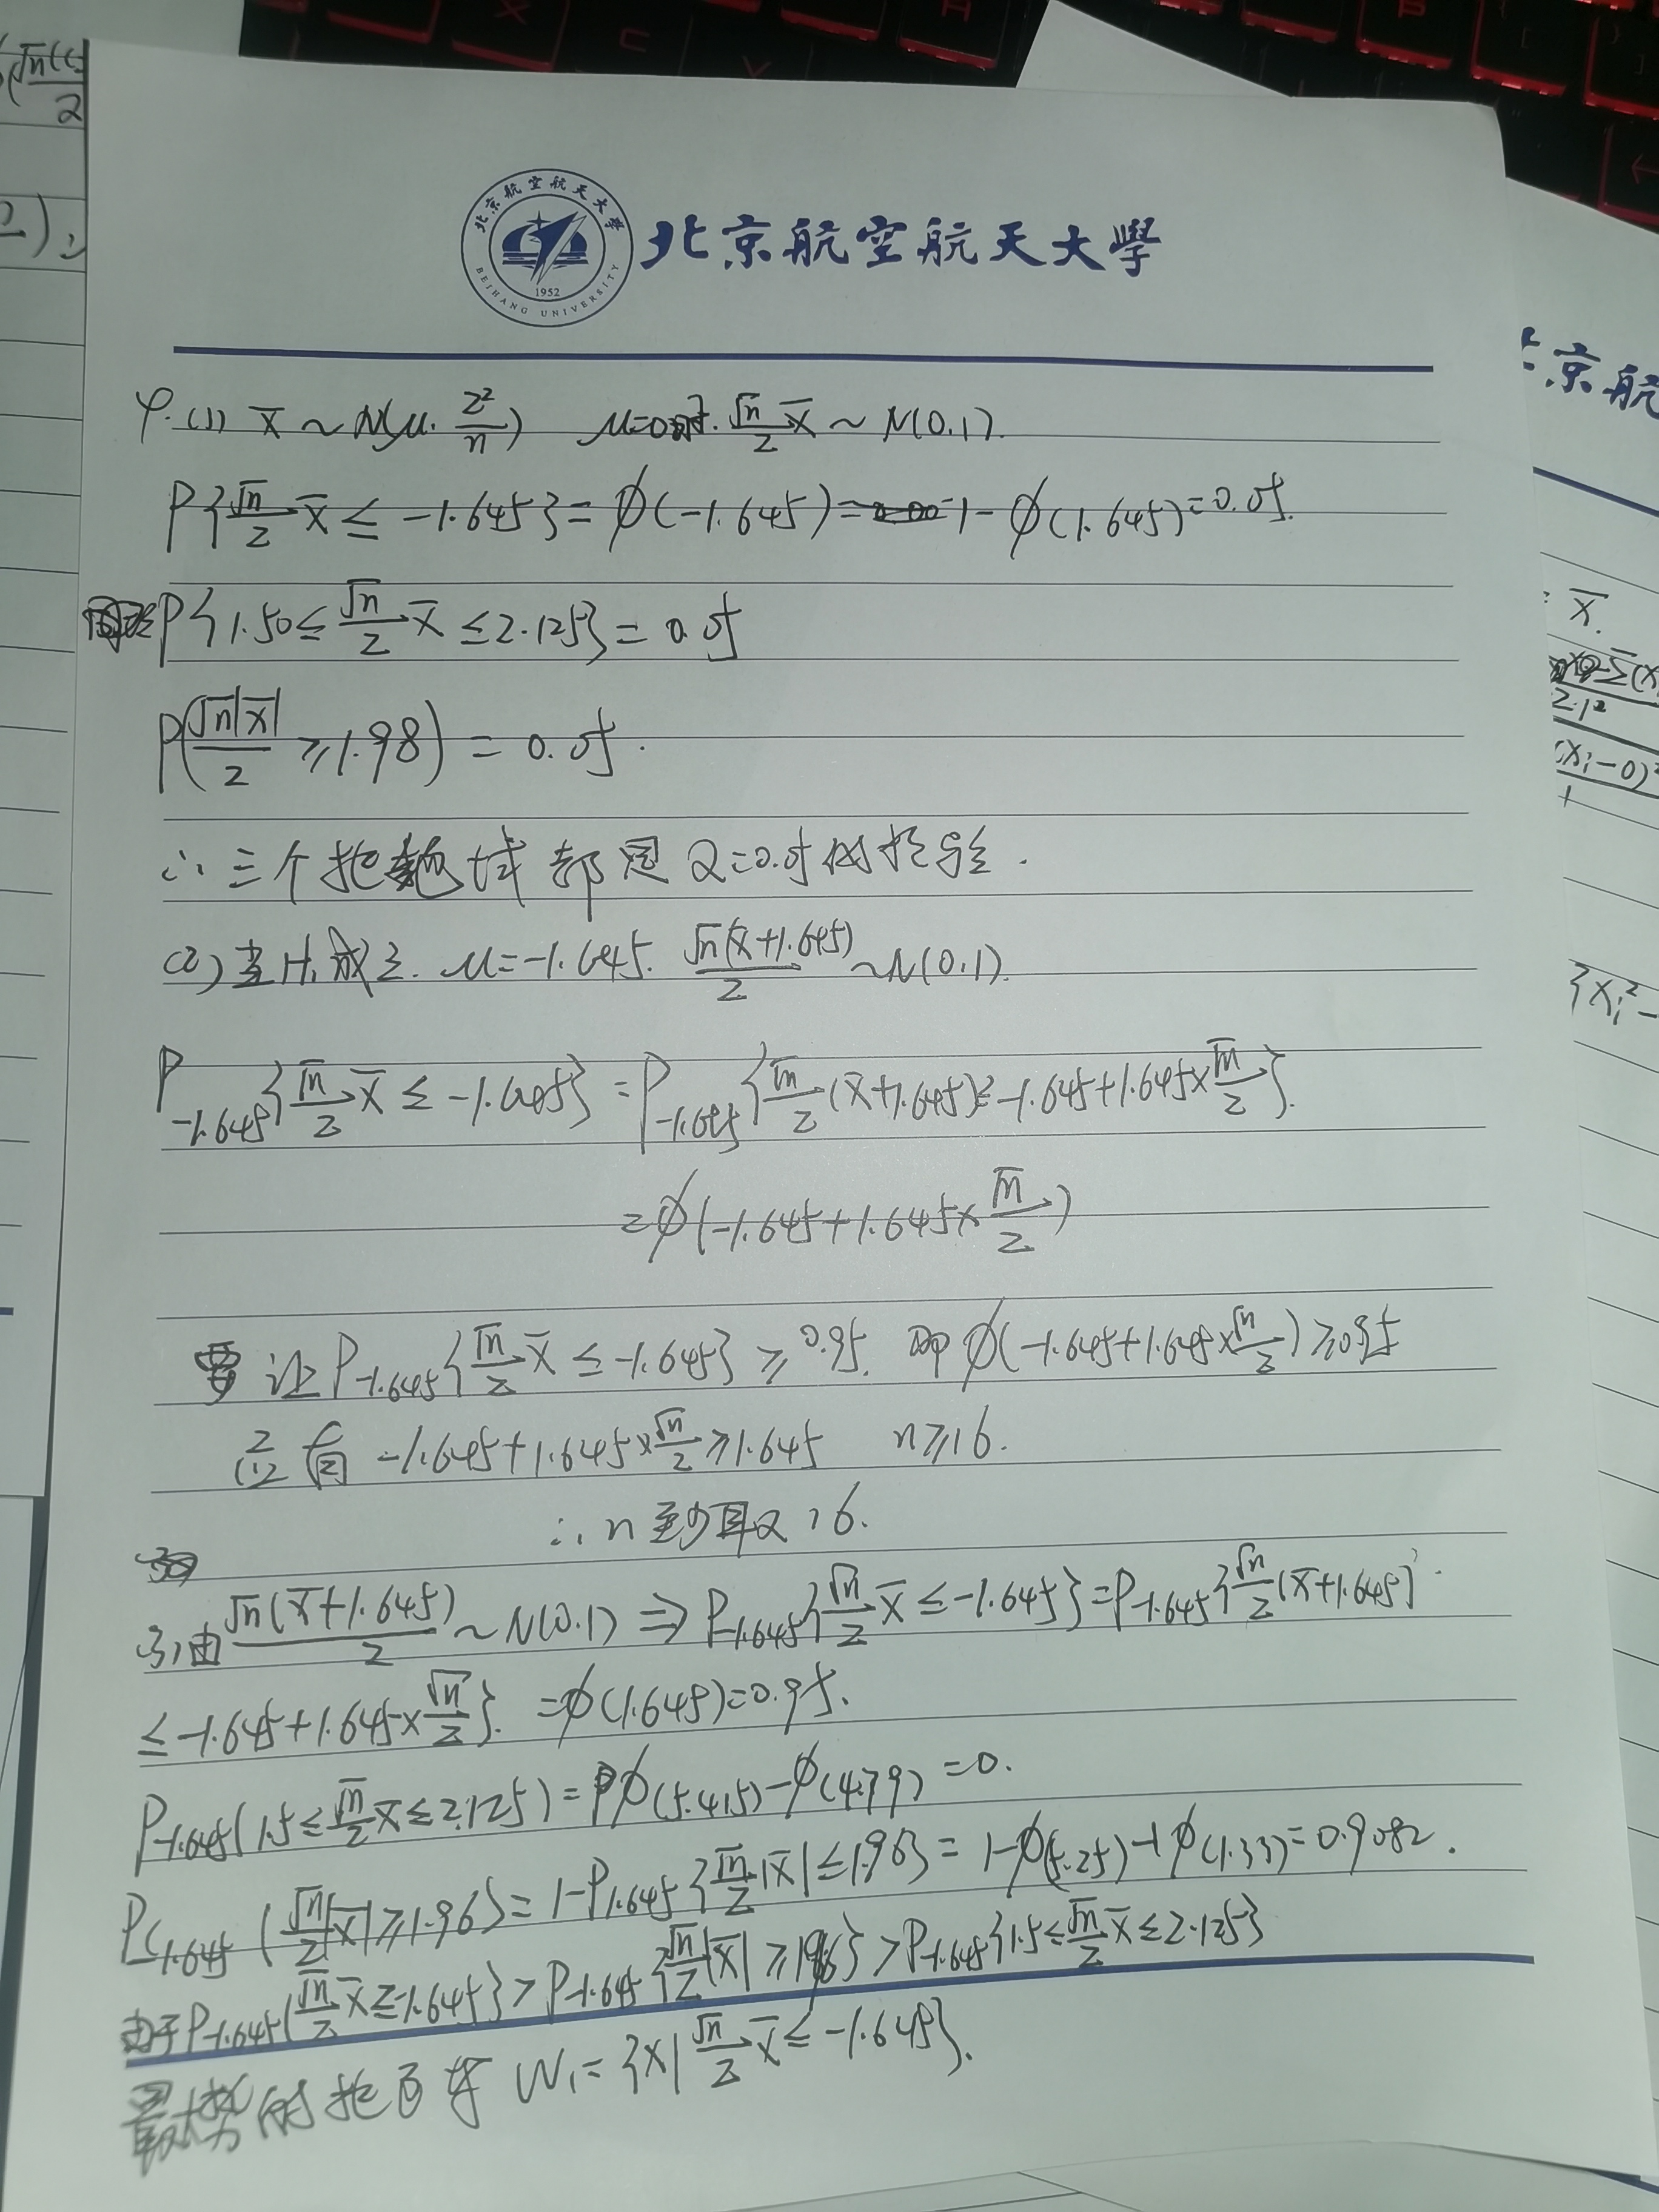 北京航空航天大學
北京航空航天大學
BEIHANG UNIVERSITY
1952
φ.(1) x̄ ~ N(μ. 2²/n) μ=0时. √n/2 x̄ ~ N(0.1).
P{√n/2 x̄ ≤ -1.645} = ϕ(-1.645) = 1-ϕ(1.645)=0.05.
P{1.50 ≤ √n/2 x̄ ≤ 2.125} = 0.05
P(√n|x̄|/2 ≥ 1.98) = 0.05.
∴三个拒绝域都是α=0.05的检验.
(2)当H₁成立. μ=-1.645. √n(x̄+1.645)/2 ~ N(0.1).
P₋₁.₆₄₅{√n/2 x̄ ≤ -1.645} = P₋₁.₆₄₅{√n/2 (x̄+1.645) ≤ -1.645+1.645×√n/2}.
=ϕ(-1.645+1.645×√n/2)
要让P₋₁.₆₄₅{√n/2 x̄ ≤ -1.645} ≥ 0.95. 即ϕ(-1.645+1.645×√n/2) ≥ 0.95
应有 -1.645+1.645×√n/2 ≥ 1.645 n≥16.
∴n至少取16.
(3)由 √n(x̄+1.645)/2 ~ N(0.1) ⇒ P₋₁.₆₄₅{√n/2 x̄ ≤ -1.645} = P₋₁.₆₄₅{√n/2 (x̄+1.645)
≤ -1.645+1.645×√n/2}. =ϕ(1.645)=0.95.
P₋₁.₆₄₅(1.5 ≤ √n/2 x̄ ≤ 2.125) = ϕ(5.415)-ϕ(4.79) =0.
P₋₁.₆₄₅(√n/2|x̄| ≥ 1.96) = 1-P₋₁.₆₄₅{√n/2|x̄| ≤ 1.96} = 1-ϕ(5.25)+ϕ(1.33)=0.9082.
由于P₋₁.₆₄₅{√n/2 x̄ ≤ -1.645} > P₋₁.₆₄₅{√n/2|x̄| ≥ 1.96} > P₋₁.₆₄₅{1.5 ≤ √n/2 x̄ ≤ 2.125}
最大势的拒否域 W₁={x|√n/2 x̄ ≤ -1.645}.
京航